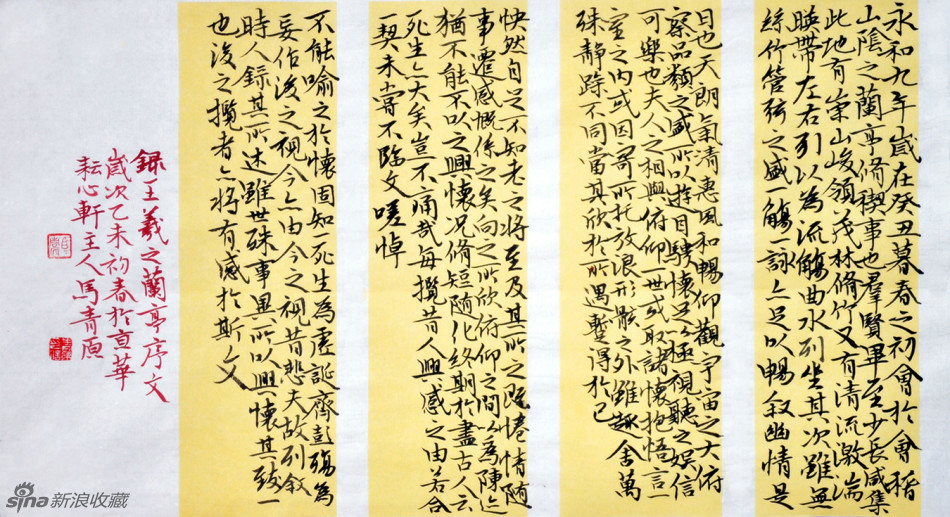 永和九年歲在癸丑暮春之初會於會稽
山陰之蘭亭脩稧事也羣賢畢至少長咸集
此地有崇山峻領茂林脩竹又有清流激湍
暎帶左右引以為流觴曲水列坐其次雖無
絲竹管弦之盛一觴一詠亦足以暢叙幽情是
日也天朗氣清惠風和暢仰觀宇宙之大俯
察品類之盛所以遊目騁懷足以極視聽之娛信
可樂也夫人之相與俯仰一世或取諸懷抱悟言一
室之內或因寄所托放浪形骸之外雖趣舍萬
殊静躁不同當其欣於所遇蹔得於己
怏然自足不知老之將至及其所之既惓情随
事遷感慨係之矣向之所欣俯仰之間以為陳迹
猶不能不以之興懷況脩短随化終期於盡古人云
死生亦大矣豈不痛哉每攬昔人興感之由若合
一契未甞不臨文嗟悼
不能喻之於懷固知一死生為虛誕齊彭殤為
妄作後之視今亦由今之視昔悲夫故列叙
時人録其所述雖世殊事異所以興懷其致一
也後之攬者亦將有感於斯文
録王羲之蘭亭序文
歲次乙未初春於京華
耘心軒主人馬青原
sina新浪收藏